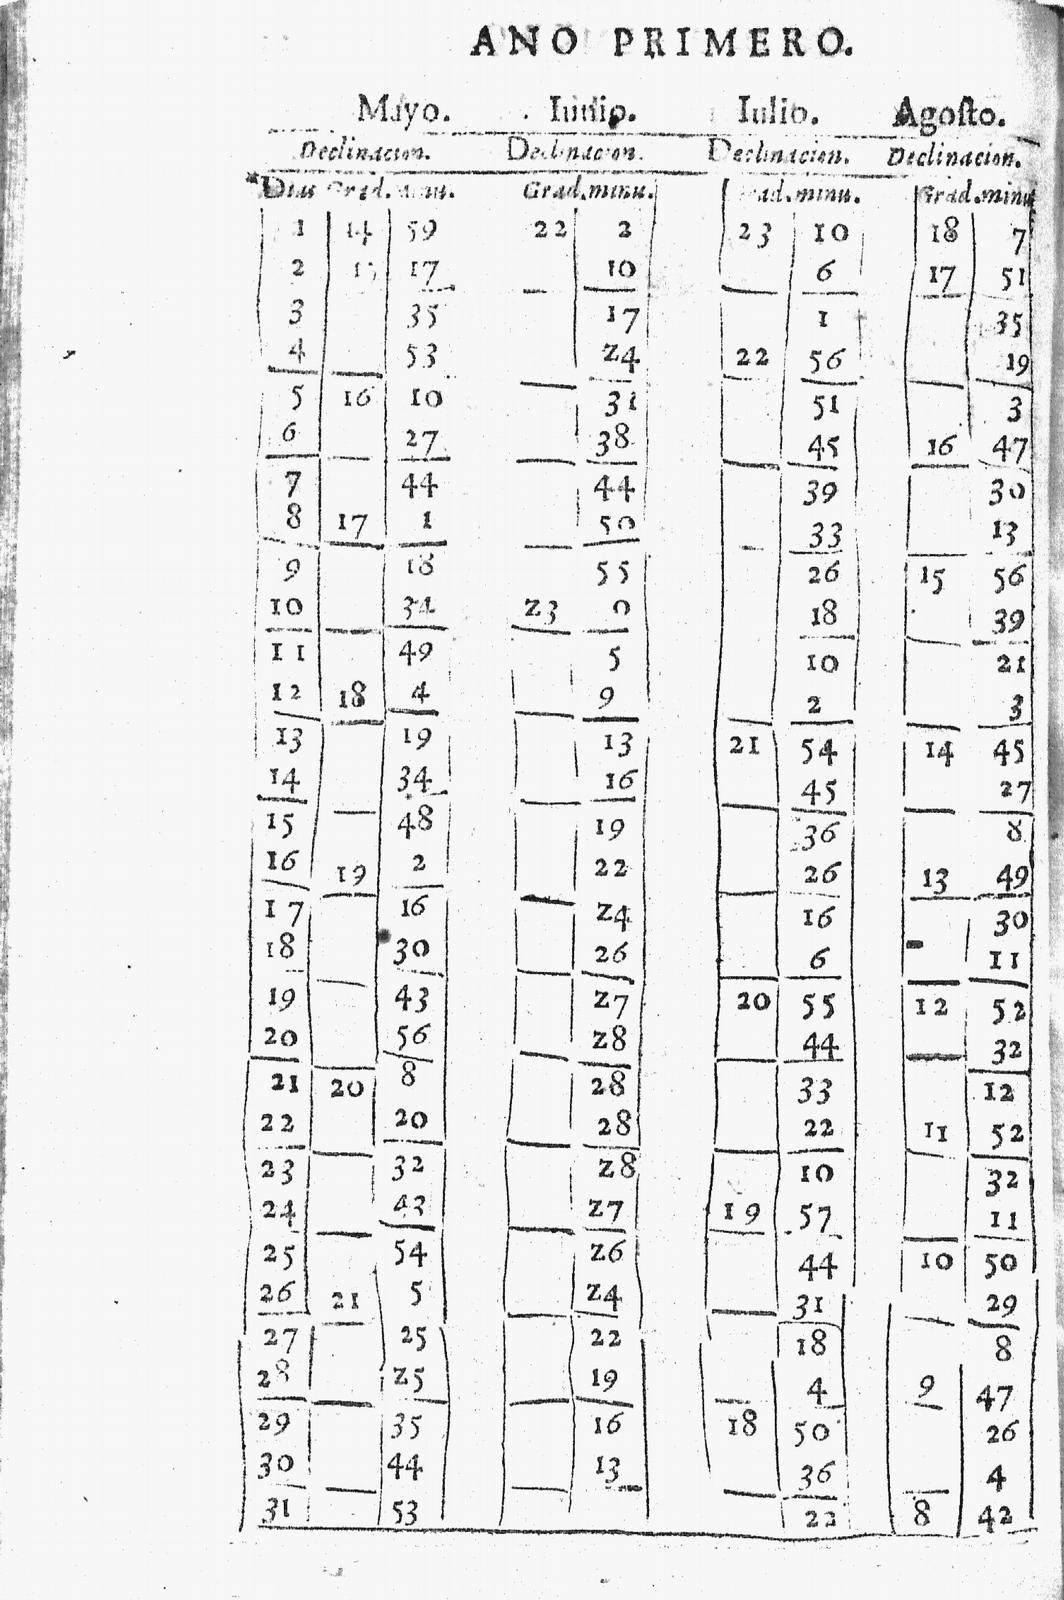 ANO PRIMERO.
Mayo. Iunio. Iulio. Agosto.
Declinacion. Declinacion. Declinacion. Declinacion.
Dias Grad. minu. Grad.minu. Grad.minu. Grad.minu
1 14 59 22 2 23 10 18 7
2 15 17 10 6 17 51
3 35 17 1 35
4 53 24 22 56 19
5 16 10 31 51 3
6 27 38 45 16 47
7 44 44 39 30
8 17 1 50 33 13
9 18 55 26 15 56
10 34 23 0 18 39
11 49 5 10 21
12 18 4 9 2 3
13 19 13 21 54 14 45
14 34 16 45 27
15 48 19 36 8
16 19 2 22 26 13 49
17 16 24 16 30
18 30 26 6 11
19 43 27 20 55 12 52
20 56 28 44 32
21 20 8 28 33 12
22 20 28 22 11 52
23 32 28 10 32
24 43 27 19 57 11
25 54 26 44 10 50
26 21 5 24 31 29
27 25 22 18 8
28 25 19 4 9 47
29 35 16 18 50 26
30 44 13 36 4
31 53 22 8 42